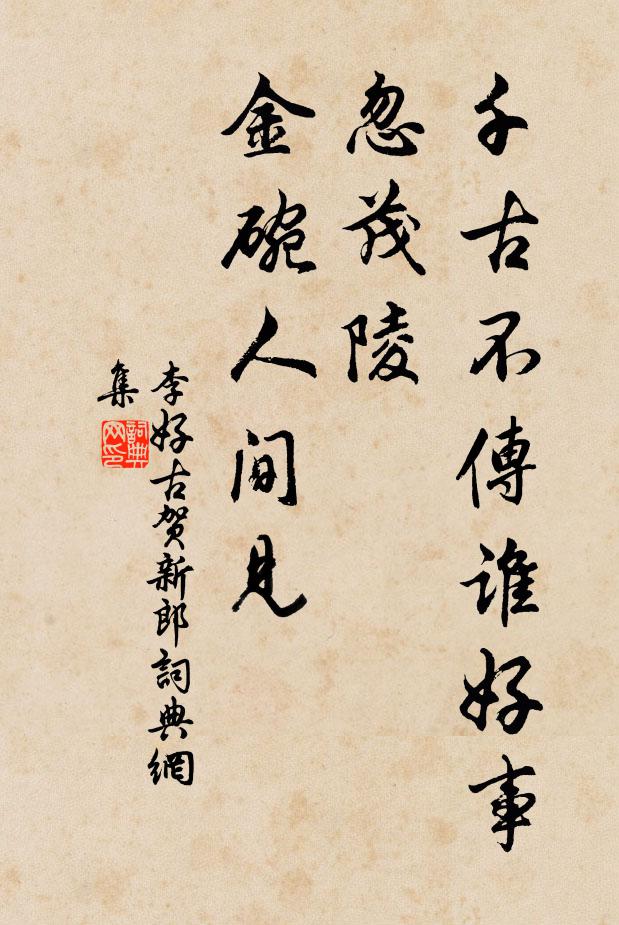 千古不傳誰好事
忽茂陵
金碗人間見
李好古賀新郎詞典網
集
詞典網印